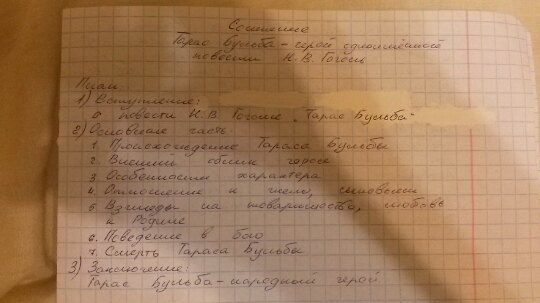 Сочинение
Тарас Бульба - герой одноимённой
повести Н.В. Гоголь
План
1) Вступление:
О повести Н.В. Гоголе „Тарас Бульба“
2) Основная часть.
1. Происхождение Тараса Бульбы
2. Внешний облик героя
3. Особенности характера
4. Отношение к сыновьям
5. Взгляды на товарищество, любовь
к Родине
6. Поведение в бою
7. Смерть Тараса Бульбы
3) Заключение:
Тарас Бульба - народный герой.